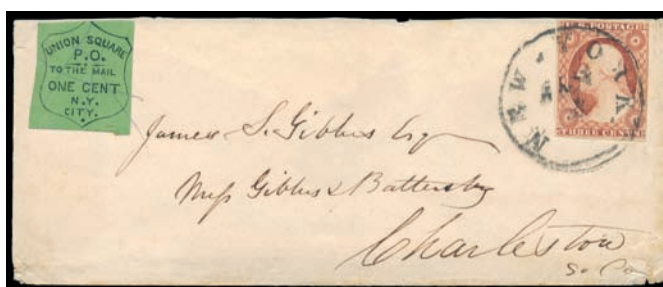 UNION SQUARE
P.O.
TO THE MAIL
ONE CENT
N.Y.
CITY.
U.S. POSTAGE
THREE CENTS
NEW-YORK
James S. Gibbes Esq
Mess Gibbes & Battersby
Charleston
So. Ca